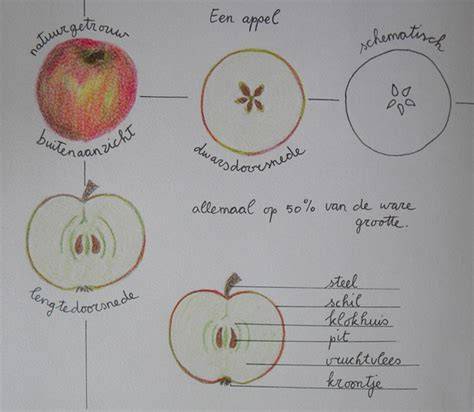 Een appel
natuurgetrouw
schematisch
buitenaanzicht
dwarsdoorsnede
allemaal op 50% van de ware
grootte.
lengtedoorsnede
steel
schil
klokhuis
pit
vruchtvlees
kroontje